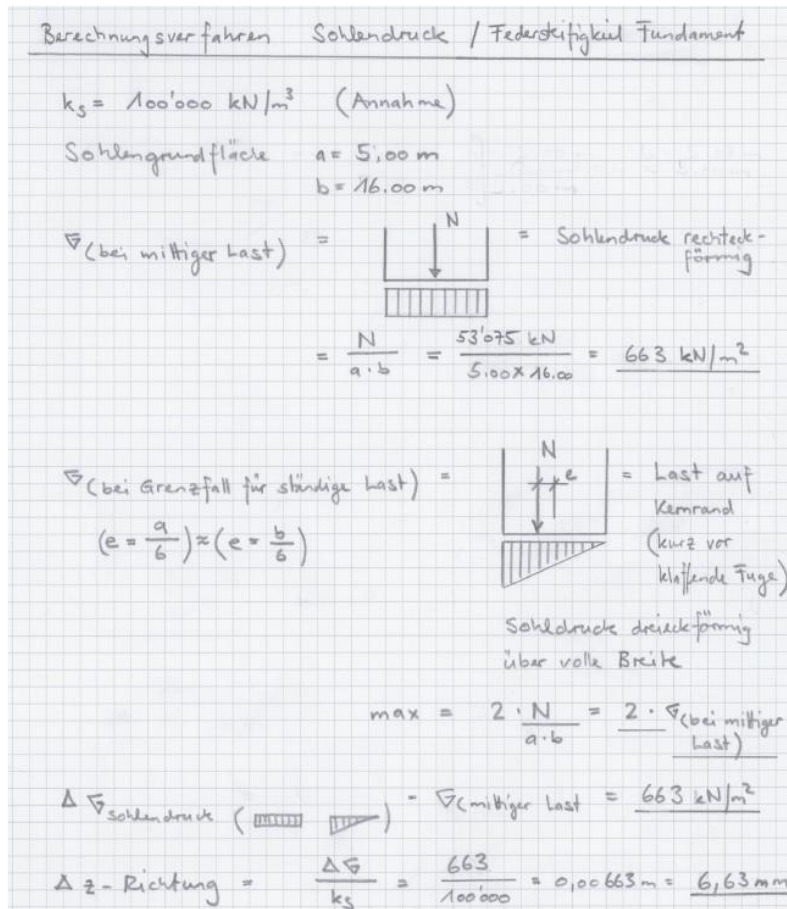 Berechnungsverfahren Sohlendruck / Federsteifigkeit Fundament
ks = 100'000 kN/m³ (Annahme)
Sohlengrundfläche a = 5,00 m
b = 16.00 m
σ (bei mittiger Last) = N = Sohlendruck rechteck-
förmig
= N / a · b = 53'075 kN / 5.00 x 16.00 = 663 kN/m²
σ (bei Grenzfall für ständige Last) = N e = Last auf
Kernrand
(e = a/6) ≈ (e = b/6) (kurz vor
klaffende Fuge)
Sohldruck dreieckförmig
über volle Breite
max = 2 · N / a · b = 2 · σ (bei mittiger
Last)
Δ σ Sohlendruck ( ) - σ (mittiger Last = 663 kN/m²
Δ z - Richtung = Δσ / ks = 663 / 100'000 = 0,00663 m = 6,63 mm